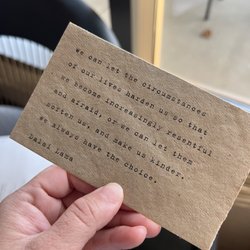 We can let the circumstances
of our lives harden us so that
we become increasingly resentful
and afraid, or we can let them
soften us, and make us kinder.
We always have the choice.
Dalai Lama